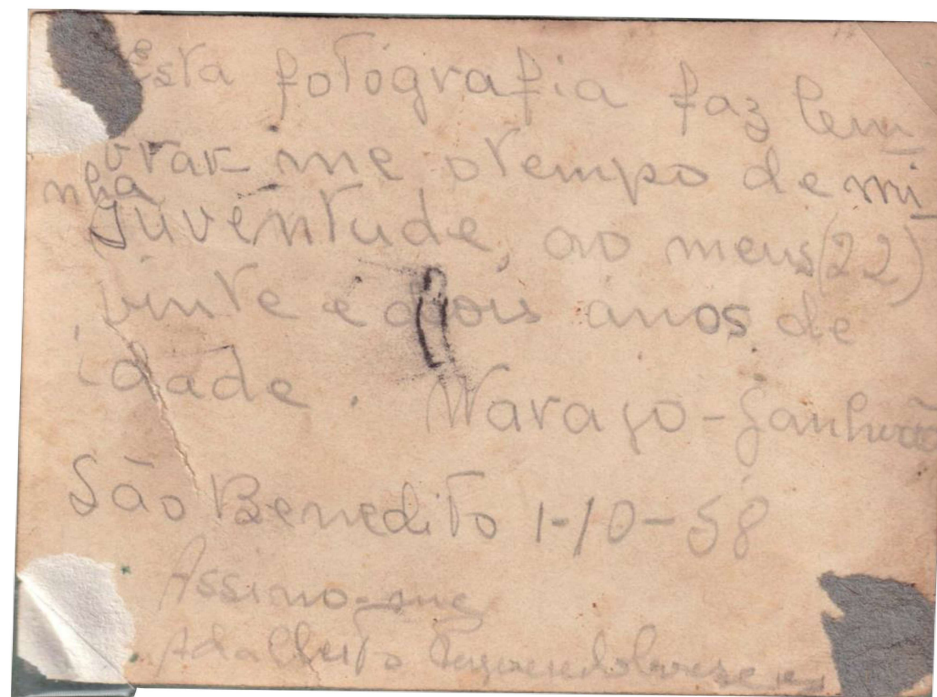 Esta fotografia faz lem
brar-me o tempo de mi
nha
Juventude, ao meus (22)
vinte e dois anos de
idade.
São Benedito 1-10-58
Assino-me
Adalberto